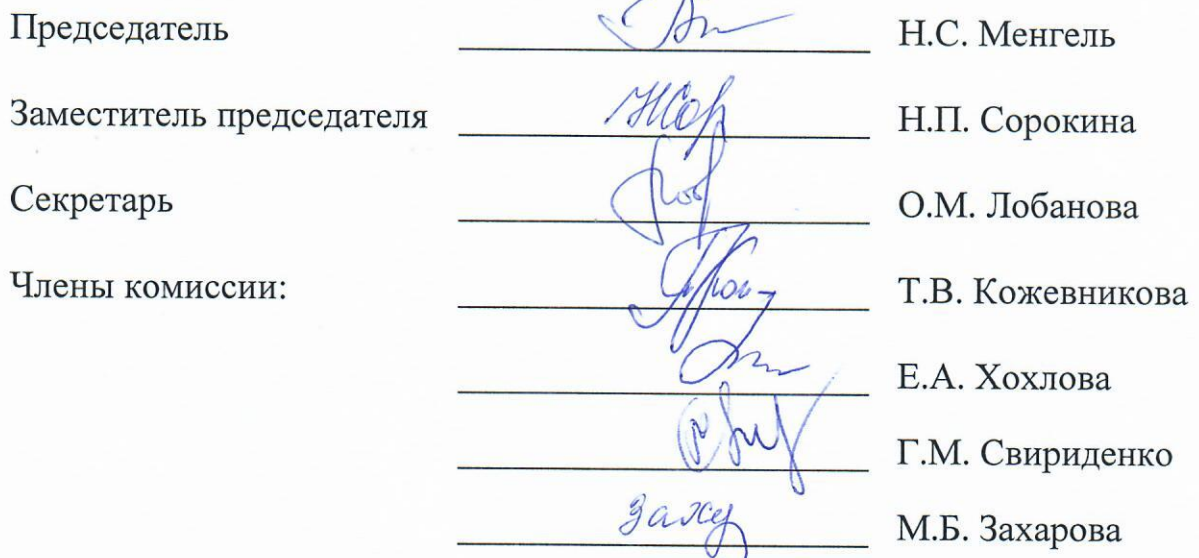 Председатель Н.С. Менгель
Заместитель председателя Н.П. Сорокина
Секретарь О.М. Лобанова
Члены комиссии: Т.В. Кожевникова
Е.А. Хохлова
Г.М. Свириденко
М.Б. Захарова